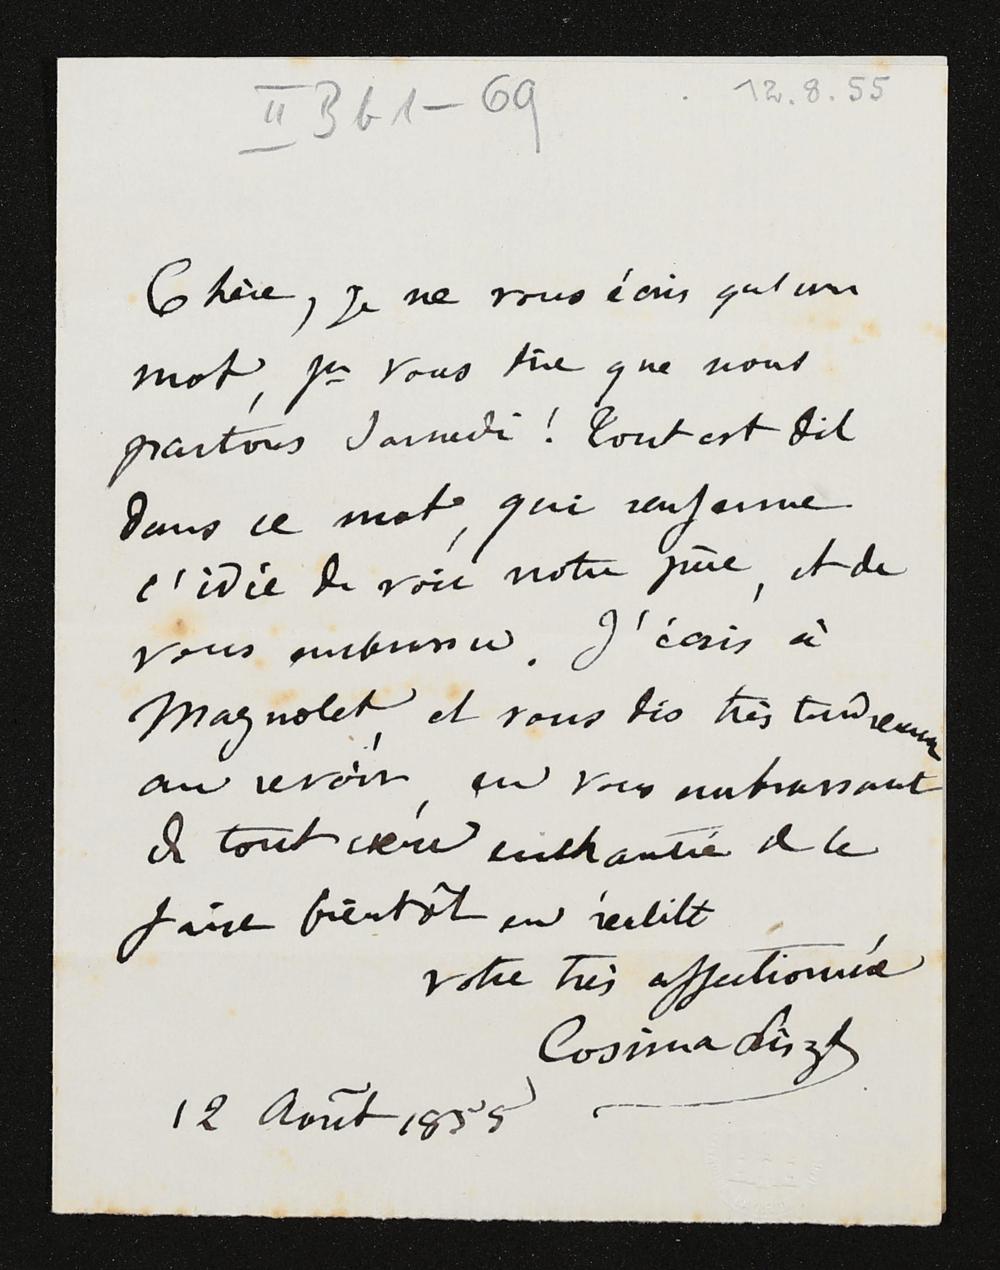 II B b 1 – 69
12.8.55
Chère, je ne vous écris qu'un
mot, pr vous dire que nous
partons Samedi ! Tout est dit
dans ce mot, qui renferme
l'idée de voir notre père, et de
vous embrasser. J'écris à
Magnolet et vous dis très tendremen
au revoir, en vous embrassant
de tout cœur enchantée de le
faire bientôt en réalité
votre très affectionnée
Cosima Liszt
12 Août 1855